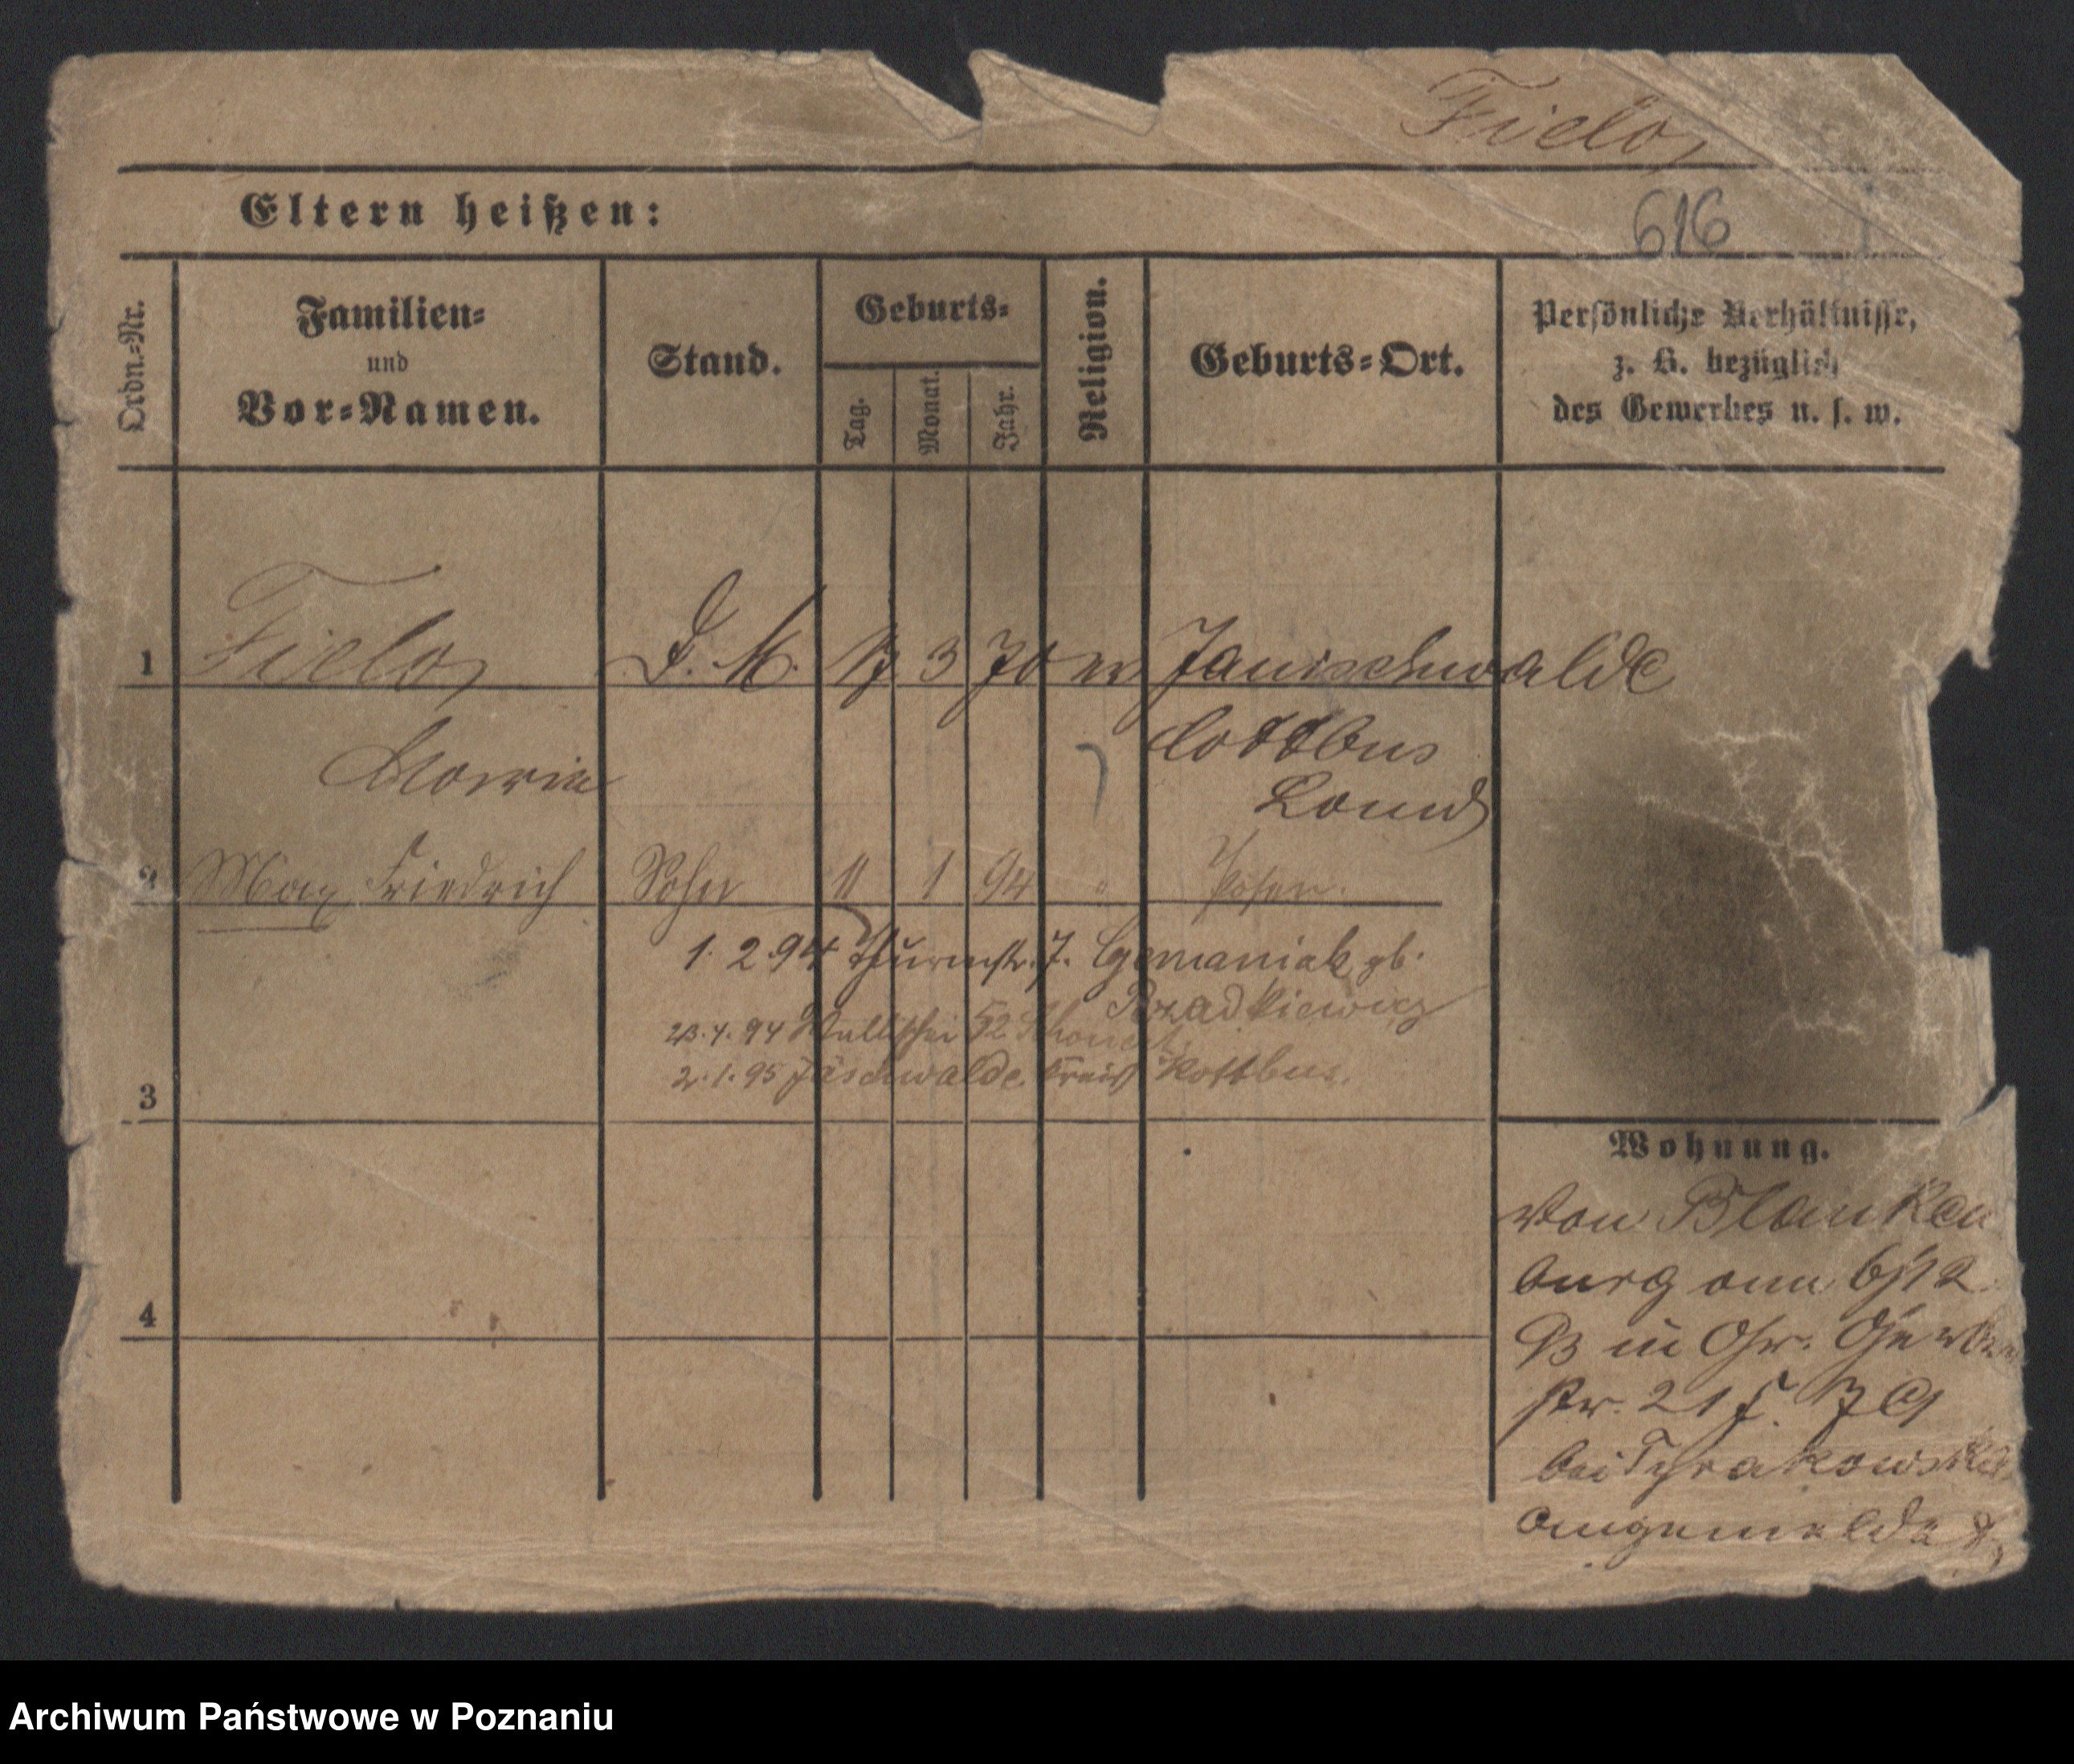 Fielo,
Eltern heißen:
616
Ordn.-Nr.
Familien-
und
Vor-Namen.
Stand.
Geburts-
Tag.
Monat.
Jahr.
Religion.
Geburts-Ort.
Persönliche Verhältnisse,
z. B. bezüglich
des Gewerbes u. s. w.
1 Fielo, D. M. 17 3 70 ev Janischwalde
Marie Cottbus
Land
2 Max Friedrich Sohn 11 1 94 " Posen.
1. 2 94 Thurmstr. 7. gb.
Rzadkiewicz
23. 4. 94 Wallischei 52
2. 1. 95 Jäschwalde Kreis Kottbus.
3
Wohnung.
von Blanken
burg am 6/12
93 in Gr. Gerber
str. 21
4
bei Tyrakowski
angemeldet,